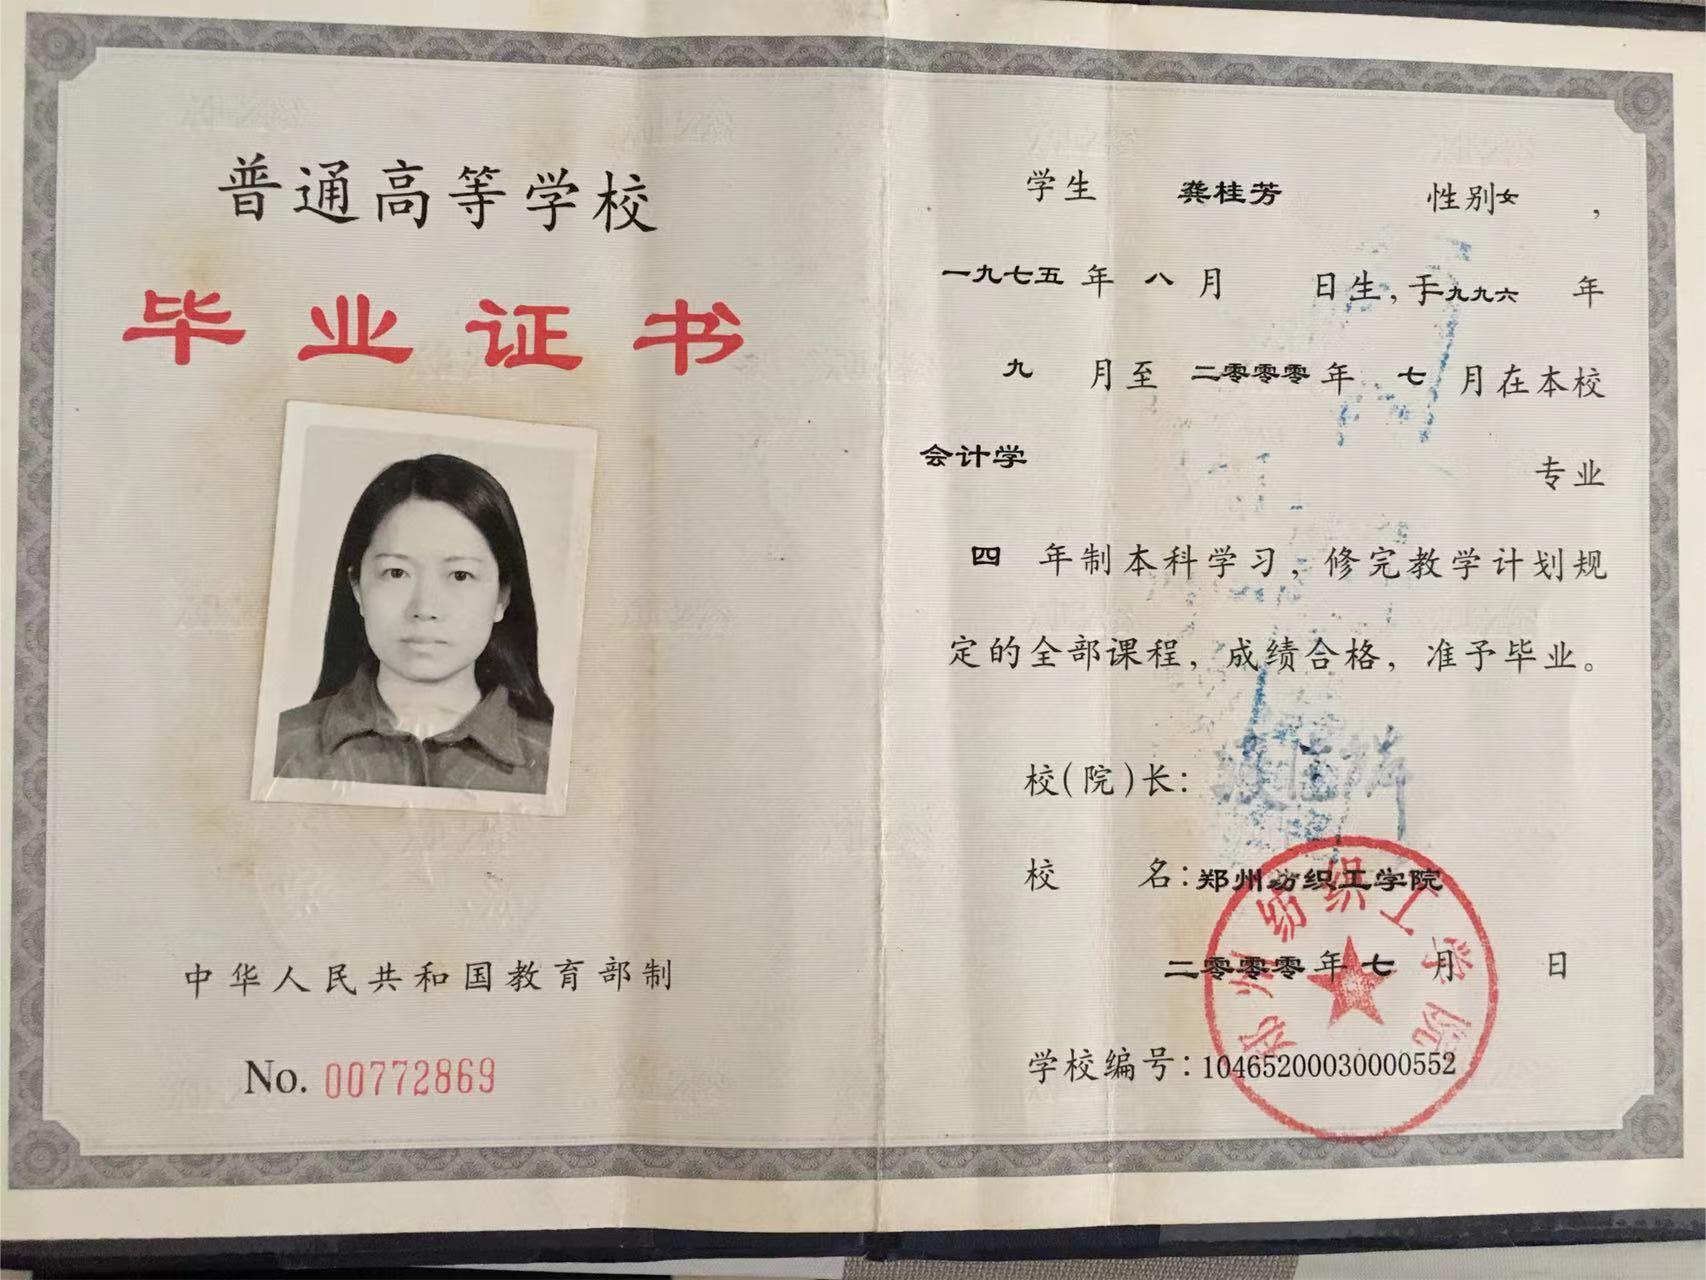 普通高等学校
毕业证书
中华人民共和国教育部制
No. 00772869
学生 龚桂芳 性别女，
一九七五年 八月 日生，于一九九六 年
九 月至 二零零零年 七 月在本校
会计学 专业
四 年制本科学习，修完教学计划规
定的全部课程，成绩合格，准予毕业。
校(院)长：
校 名：郑州纺织工学院
二零零零年七 月 日
学校编号：10465200030000552
郑州纺织工学院